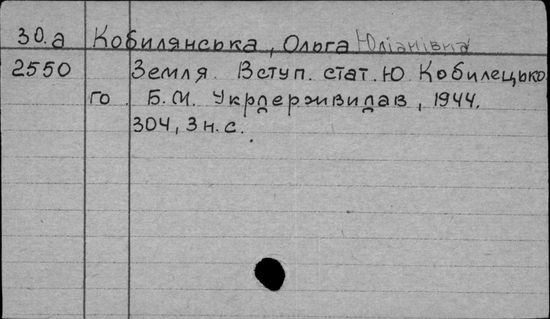 30.а Кобилянська, Ольга Юліанівна
2550 Земля. Вступ. стат. Ю. Кобилецько
го. Б.М. Укрдержвидав, 1944.
304, 3 н.с.